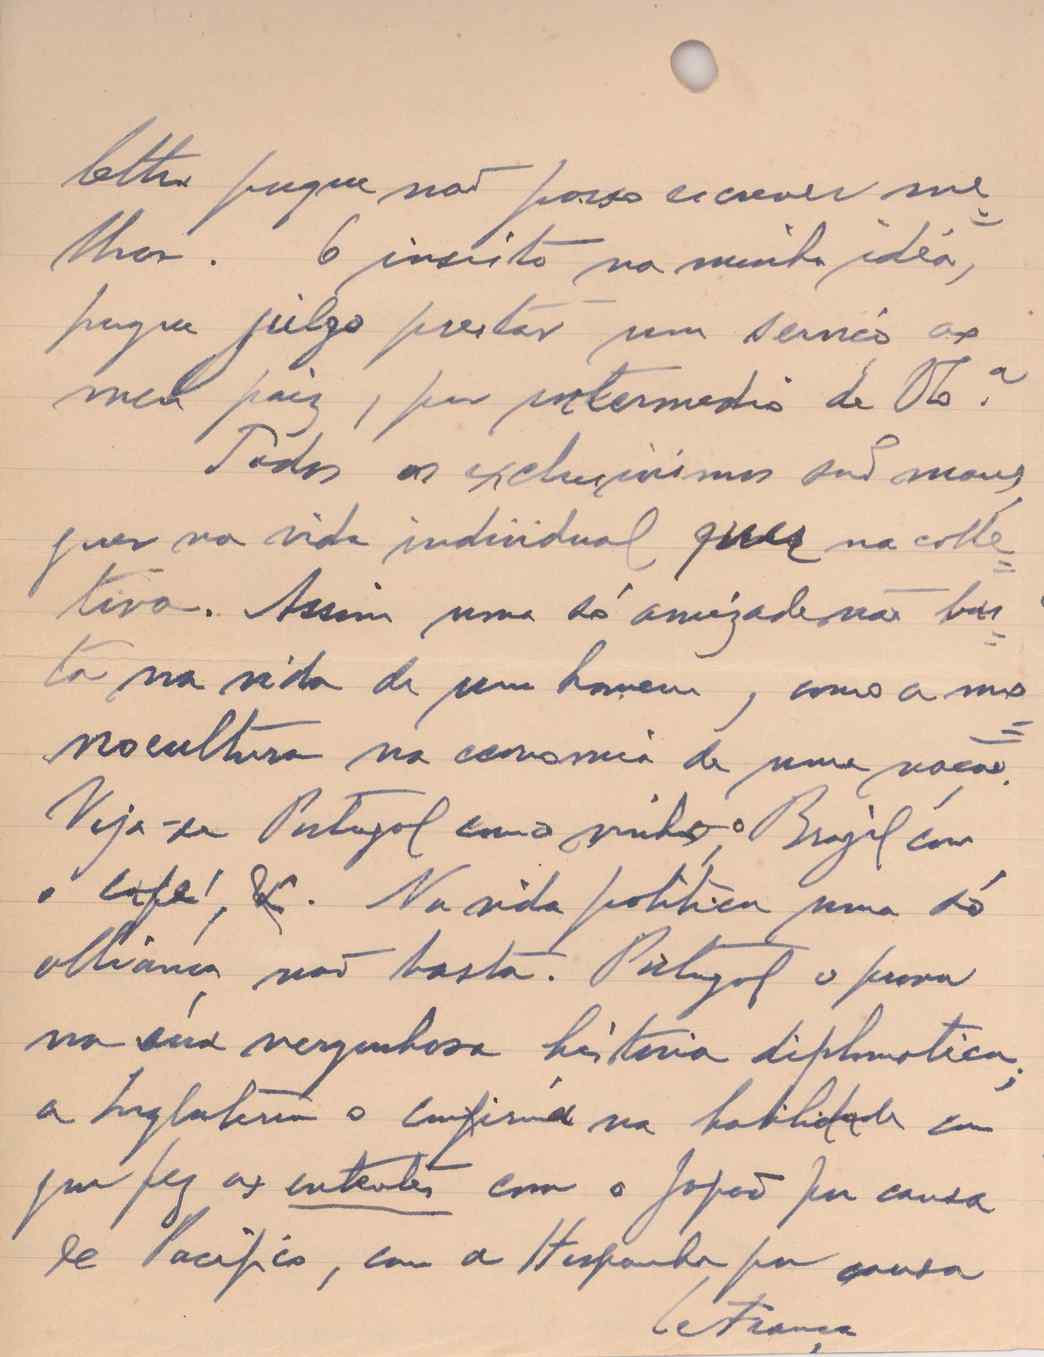 lettra porque não posso escrever me=
lhor. E insisto na minha idéa,
porque julgo prestar um serviço ao
meu paiz, por intermedio de V. Ex.ª
Todos os exclusivismos são maus,
quer na vida individual quer na colle=
tiva. Assim uma só amizade não bas=
ta na vida de um homem, como a mo=
nocultura na economia de uma nação.
Veja-se Portugal com o vinho, o Brazil com
o café, &. Na vida politica uma só
alliança não basta. Portugal o prova
na sua vergonhosa historia diplomatica;
a Inglaterra o confirma na habilidade com
que fez as ententes com o Japão por causa
do Pacifico, com a Hespanha por causa
de França